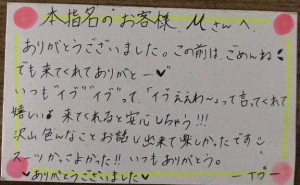 本指名のお客様 Mさんへ
ありがとうございました。この前は、ごめんね
でも来てくれてありがとー♥
いつも"イブ""イブ"って、「イブええわ〜」って言ってくれて
嬉しい 来てくれると安心しちゃう!!!
沢山色んなことお話し出来て楽しかったです
スーツかっこよかった!! いつもありがとう。
♥ありがとうございました♥ ーイブー